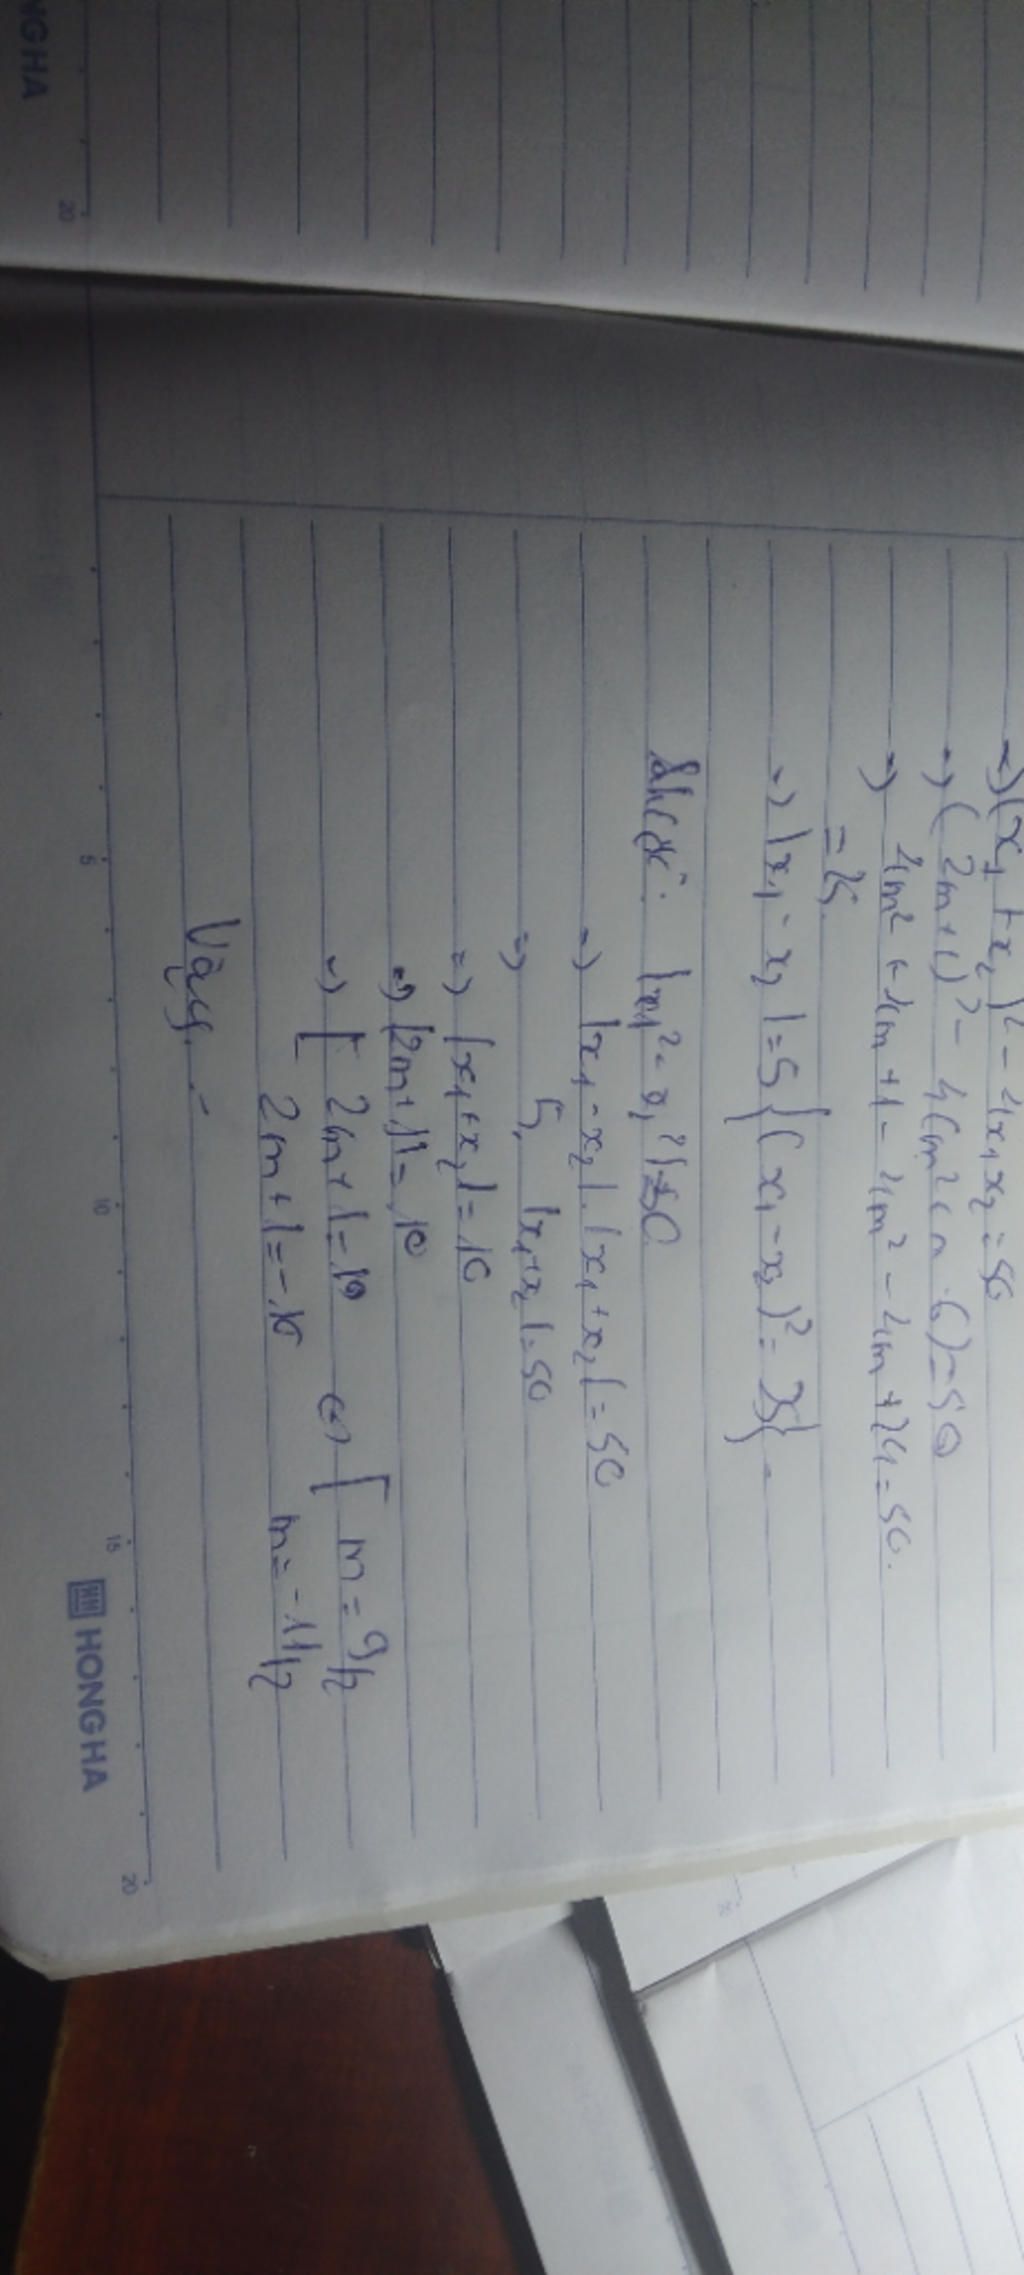 => (x₁ + x₂)² - 4x₁x₂ = 50
=> (2m+1)² - 4(m²+m-6) = 50
=> 4m² + 4m + 1 - 4m² - 4m + 24 = 50.
= 25.
=> |x₁ - x₂| = 5 {(x₁ - x₂)² = 25}.
|x₁² - x₁²| = 50
=> |x₁ - x₂| . |x₁ + x₂| = 50
=> 5. |x₁+x₂| = 50
=> |x₁ + x₂| = 10
=> |2m+1| = 10
=> [ 2m + 1 = 10 <=> [ m = 9/2
2m + 1 = -10 m = -11/2
Vậy. -
5 10 15 20
HONG HA
NG HA
20